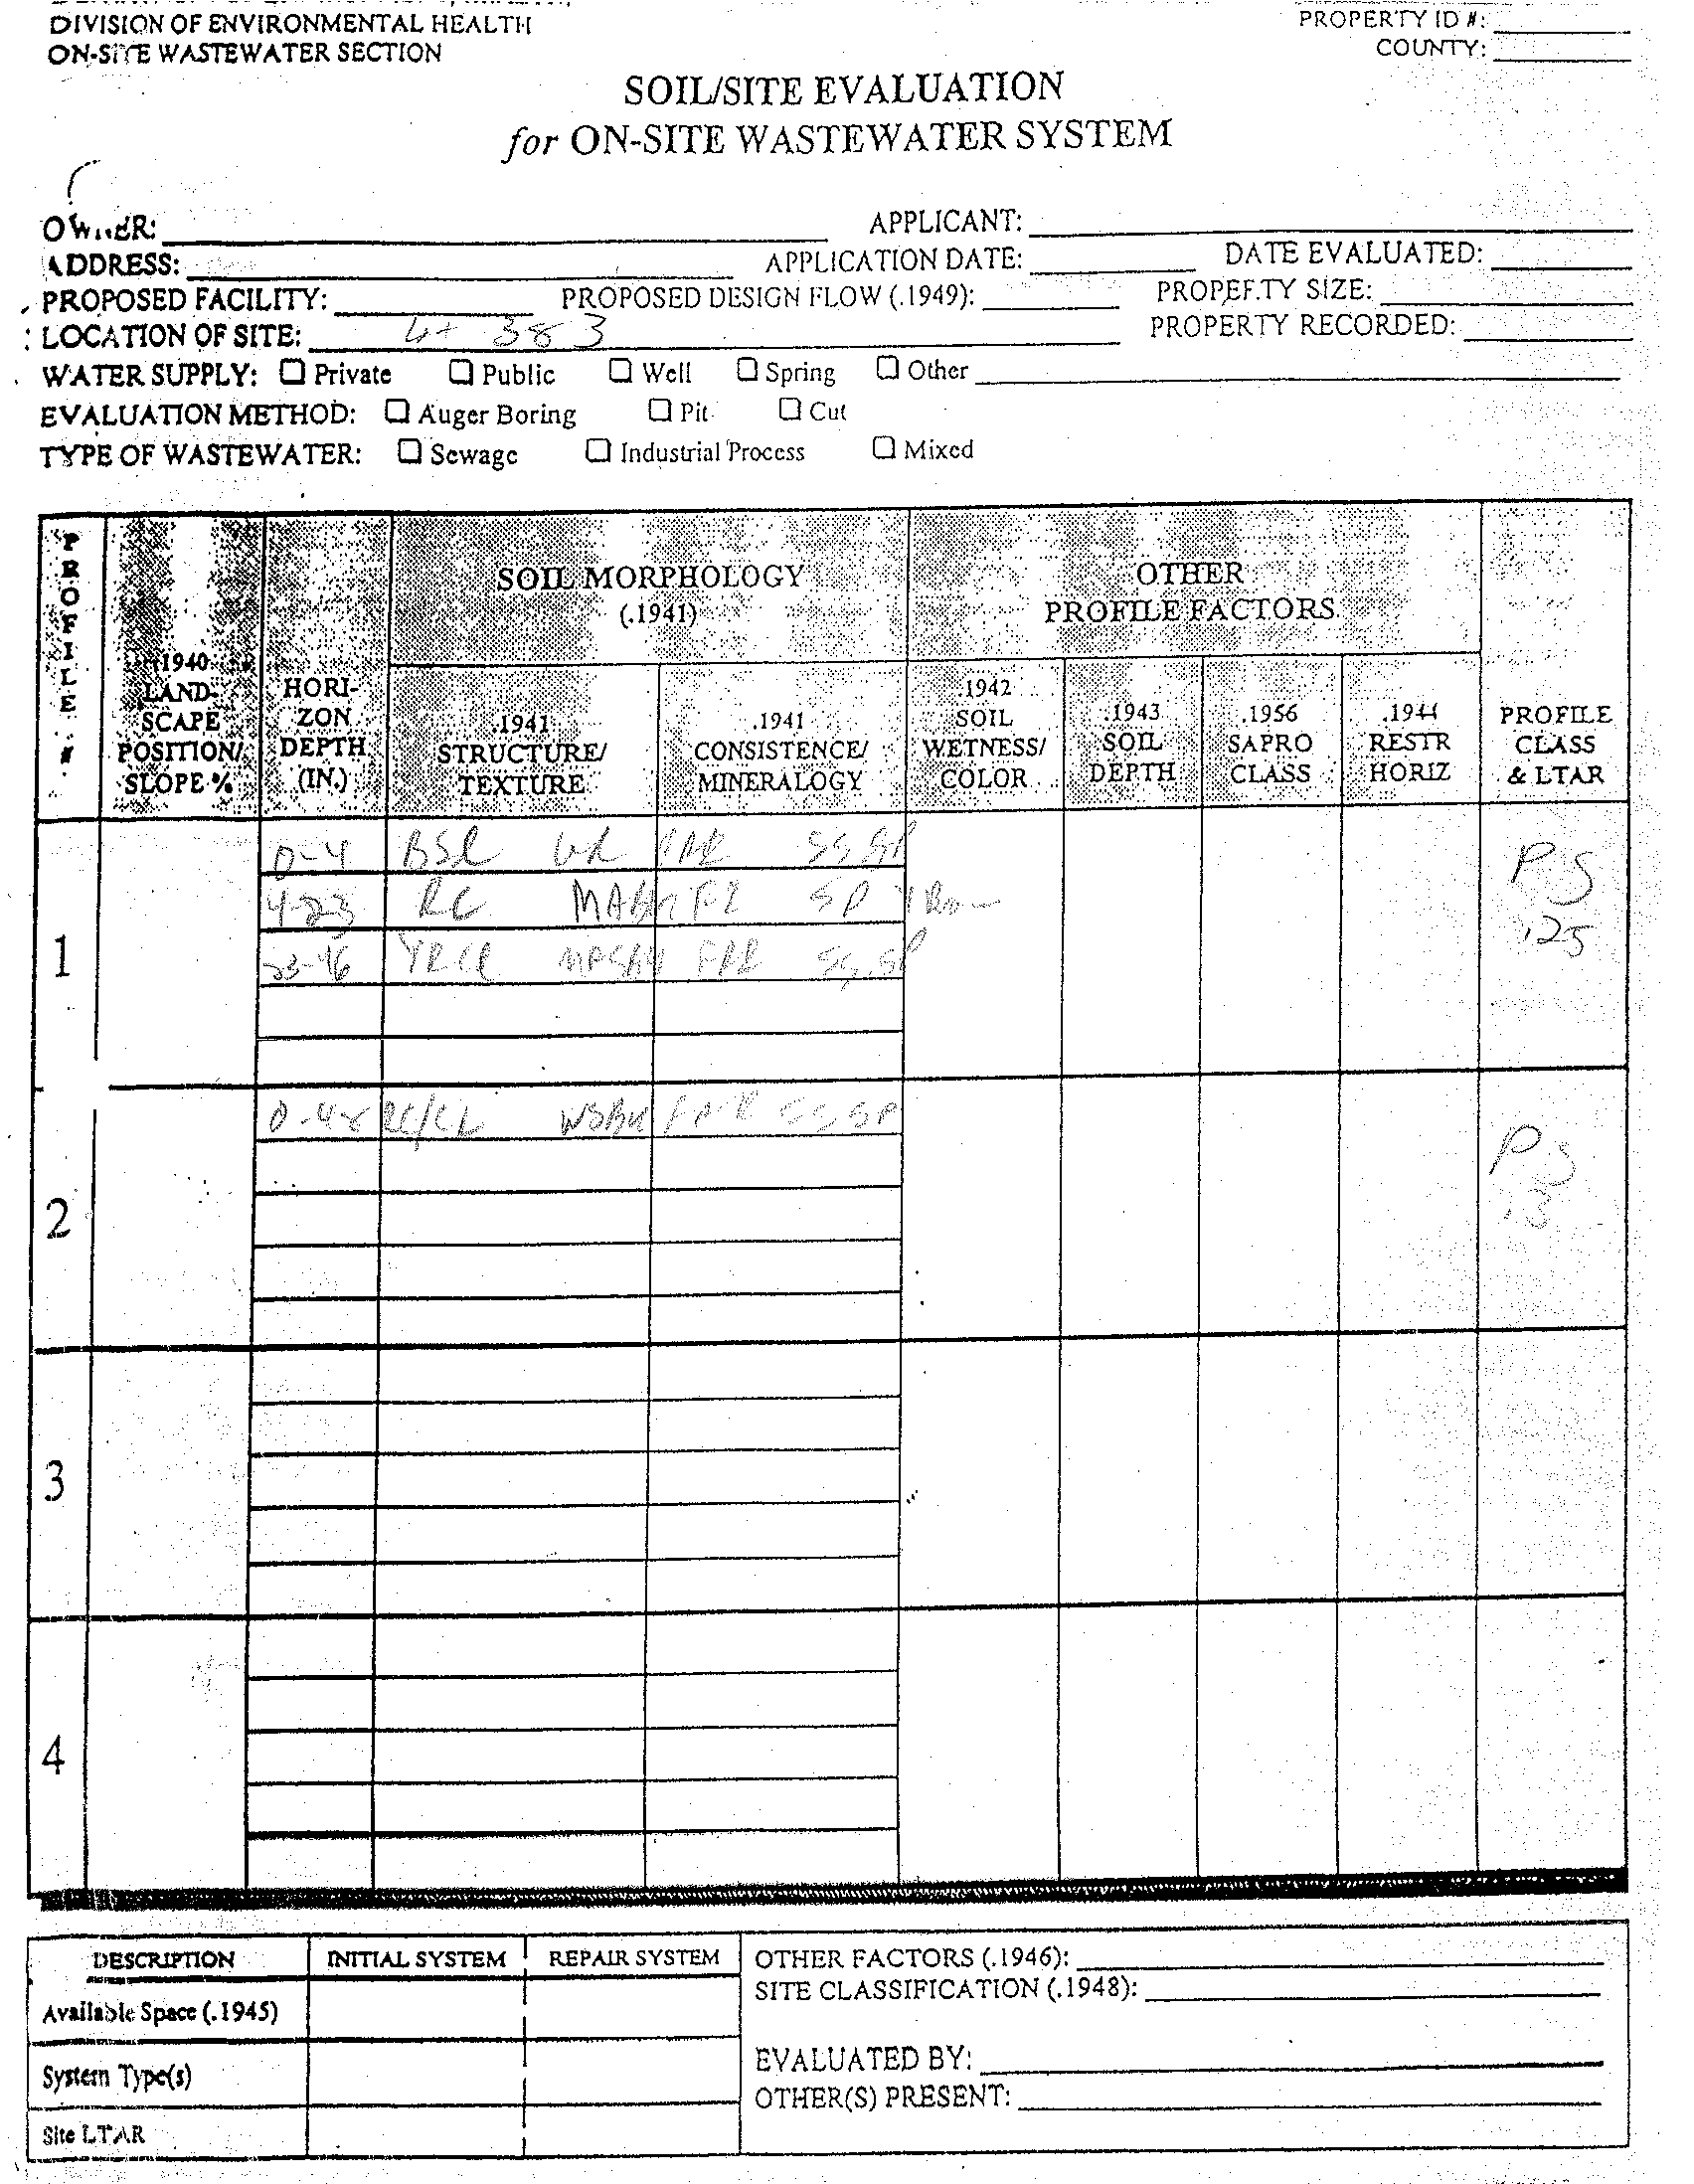 DIVISION OF ENVIRONMENTAL HEALTH
ON-SITE WASTEWATER SECTION
PROPERTY ID #:
COUNTY:
SOIL/SITE EVALUATION
for ON-SITE WASTEWATER SYSTEM
OWNER:
APPLICANT:
ADDRESS:
APPLICATION DATE:
DATE EVALUATED:
PROPOSED FACILITY:
PROPOSED DESIGN FLOW (.1949):
PROPERTY SIZE:
LOCATION OF SITE: 383
PROPERTY RECORDED:
WATER SUPPLY: ☐ Private ☐ Public ☐ Well ☐ Spring ☐ Other
EVALUATION METHOD: ☐ Auger Boring ☐ Pit ☐ Cut
TYPE OF WASTEWATER: ☐ Sewage ☐ Industrial Process ☐ Mixed
PROFILE #
.1940 LAND-SCAPE POSITION/ SLOPE %
HORI-ZON DEPTH (IN.)
SOIL MORPHOLOGY
(.1941)
OTHER
PROFILE FACTORS
.1941 STRUCTURE/ TEXTURE
.1941 CONSISTENCE/ MINERALOGY
.1942 SOIL WETNESS/ COLOR
.1943 SOIL DEPTH
.1956 SAPRO CLASS
.1944 RESTR HORIZ
PROFILE CLASS & LTAR
1
0-4 BSL GR SS SP
4-23 RC SP
23-46 YRCL SS, SP
PS
.25
2
0-48 RC/CL WSBK SS SP
PS
.3
3
4
DESCRIPTION
INITIAL SYSTEM
REPAIR SYSTEM
OTHER FACTORS (.1946):
SITE CLASSIFICATION (.1948):
Available Space (.1945)
EVALUATED BY:
System Type(s)
OTHER(S) PRESENT:
Site LTAR